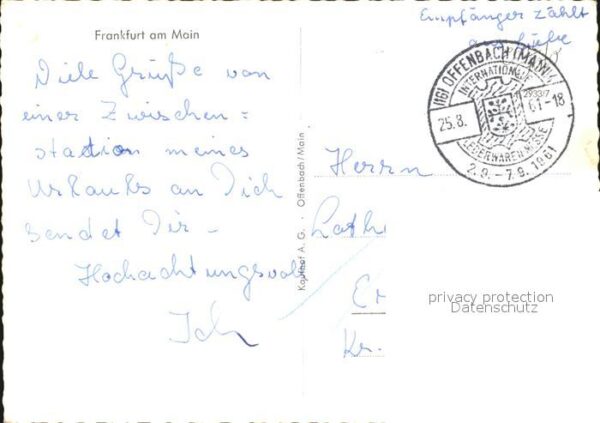 Frankfurt am Main
Viele Grüße von
einer Zwischen=
station meines
Urlaubs an Dich
sendet Dir –
Hochachtungsvoll
Ich
Kaufhof A. G. · Offenbach/Main
Empfänger zählt
(16) OFFENBACH (MAIN)
INTERNATIONALE
LEDERWAREN MESSE
25.8. 61-18
2933/7
2.9. – 7.9. 1961
Herrn
Kr.
privacy protection
Datenschutz